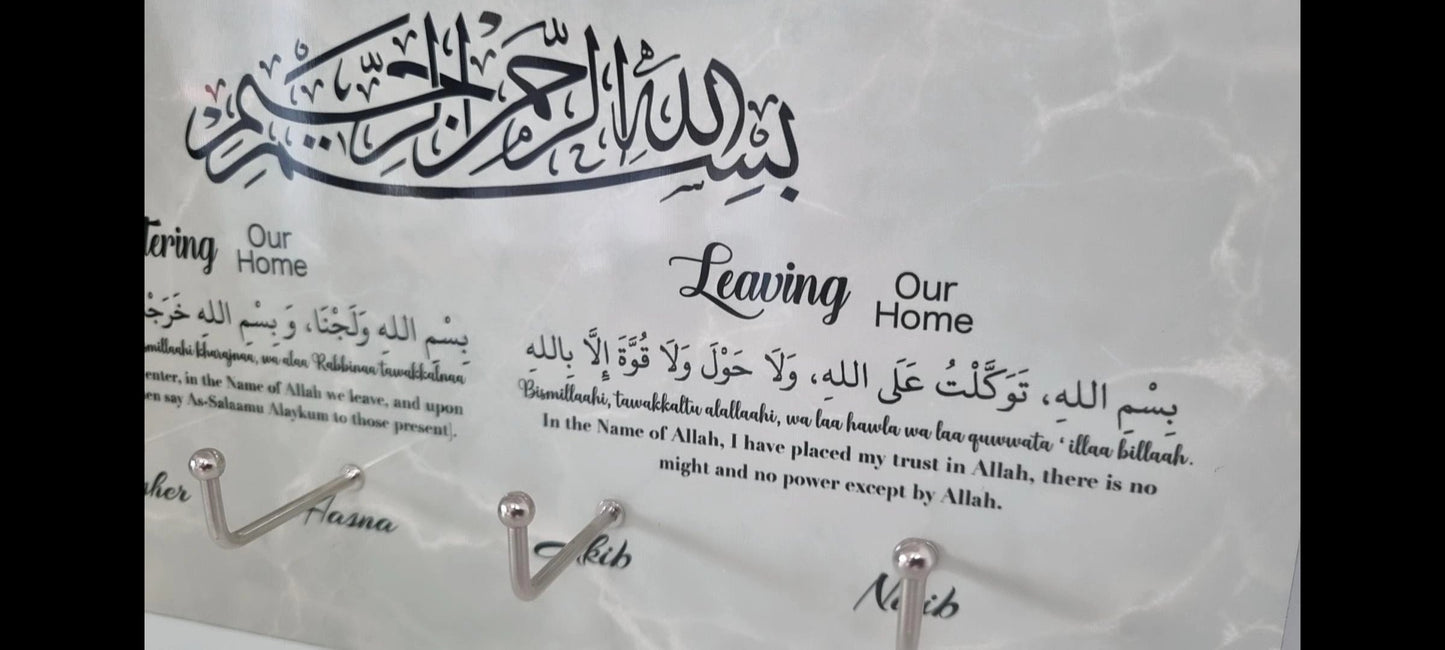 بِسْمِ اللهِ الرَّحْمٰنِ الرَّحِيْمِ
Our Home
بِسْمِ اللهِ وَلَجْنَا، وَ بِسْمِ اللهِ
kharajnaa, wa alaa Rabbinaa tawakkalnaa
enter, in the Name of Allah we leave, and upon
say As-Salaamu Alaykum to those present].
Leaving Our Home
بِسْمِ اللهِ، تَوَكَّلْتُ عَلَى اللهِ، وَلَا حَوْلَ وَلَا قُوَّةَ إِلَّا بِاللهِ
Bismillaahi, tawakkaltu alallaahi, wa laa hawla wa laa quwwata ‘illaa billaah.
In the Name of Allah, I have placed my trust in Allah, there is no
might and no power except by Allah.
Aasna